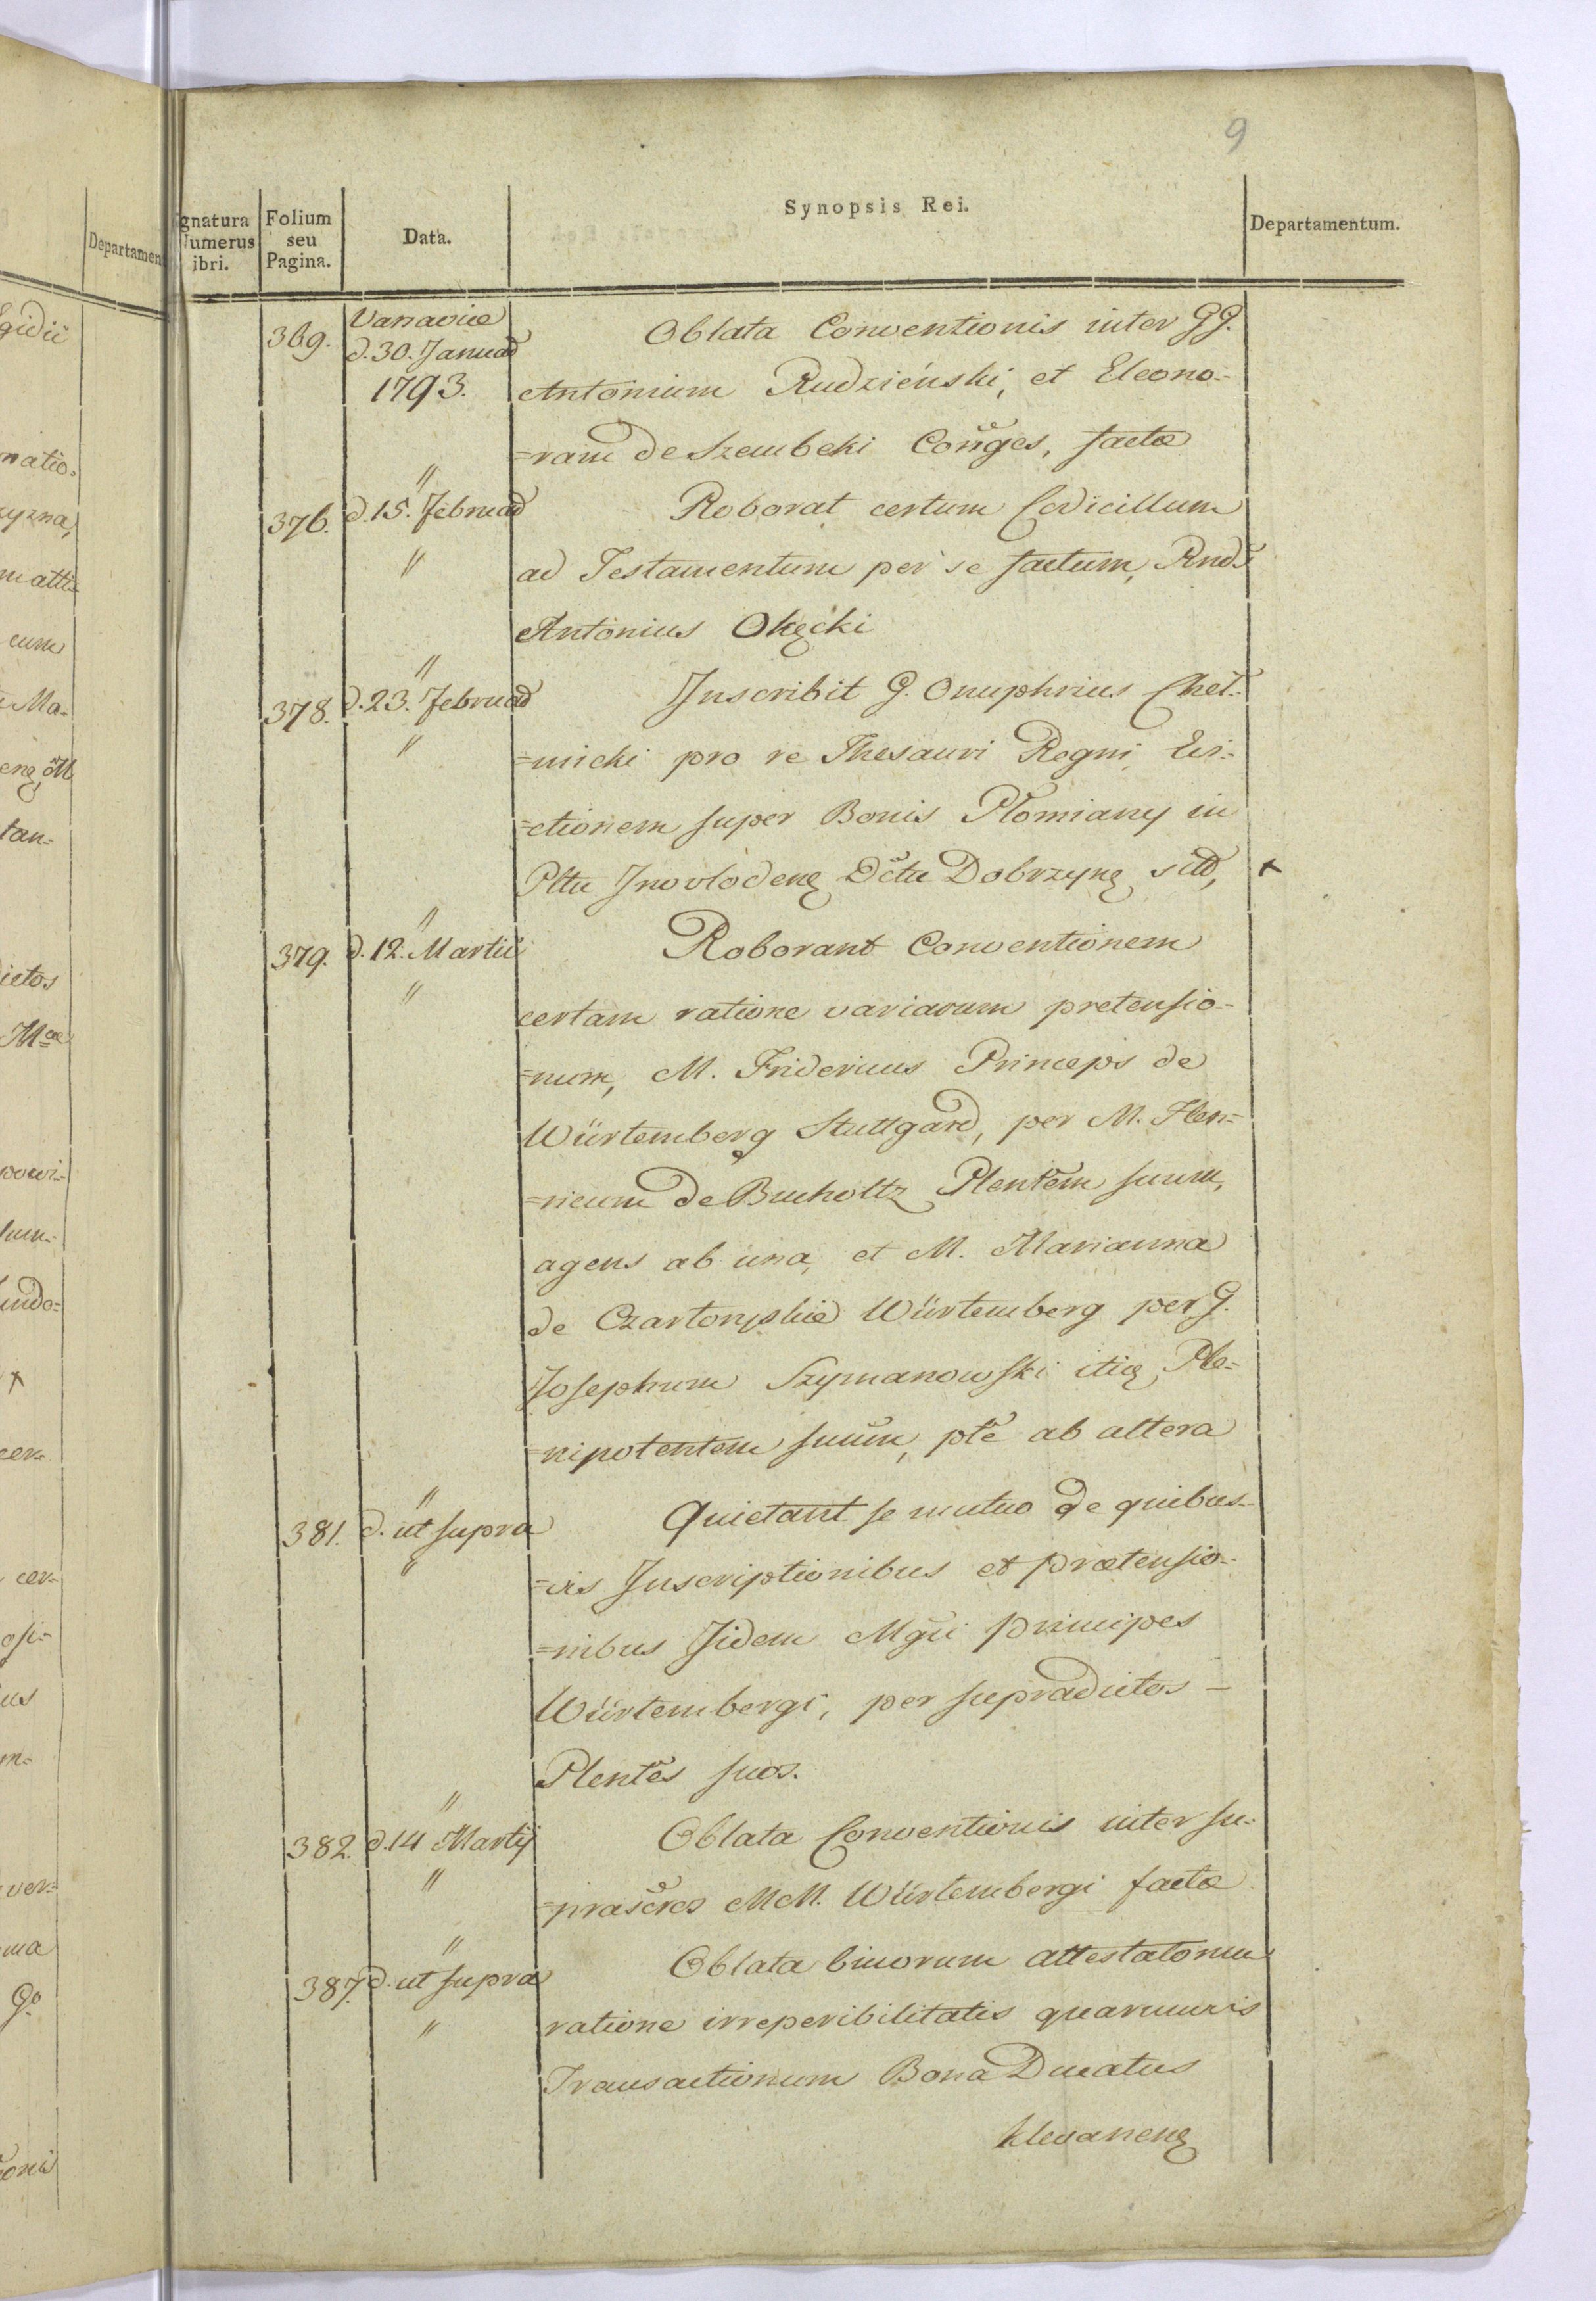 9
gnatura Numerus ibri.
Folium seu Pagina.
Data.
Synopsis Rei.
Departamentum.
Departamen
369. Varsaviæ d. 30. Januar 1793. Oblata Conventionis inter GG.
Antonium Rudzieński, et Eleono-
=ram de Szembeki Conges, factæ
376. " d. 15. Februar " Roborat certum Codicillum
ad Testamentum per se factum, Rnds
Antonius Okęcki
378. " d. 23. Februar " Inscribit G. Onuphrius Cheł-
=micki pro re Thesauri Regni, Evi-
=ctionem super Bonis Płomiany in
Pltu Inovlodenę Dctu Dobrzynę sitd, x
379. " d. 12. Martii " Roborant Conventionem
certam ratione variarum pretensio-
=num, M. Fridericus Princeps de
Würtemberg Stuttgard, per M. Hen-
=ricum de Bucholtz Plentem suum,
agens ab una, et M. Marianna
de Czartoryskie Würtemberg per G.
Josephum Szymanowski itię, Ple-
=nipotentem suum, pte ab altera
381. " d. ut supra " Quietant se mutuo de quibus-
=vis Inscriptionibus et prætensio-
=nibus Jidem Mgci principes
Würtembergi, per supradictos -
Plentes suos.
382. " d. 14 Martij " Oblata Conventionis inter su-
=prascros MM. Würtembergi factæ
387. " d. ut supra " Oblata binorum attestatorum
ratione irreperibilitatis quarumvis
Transactionum Bona Ducatus
Klevanenę